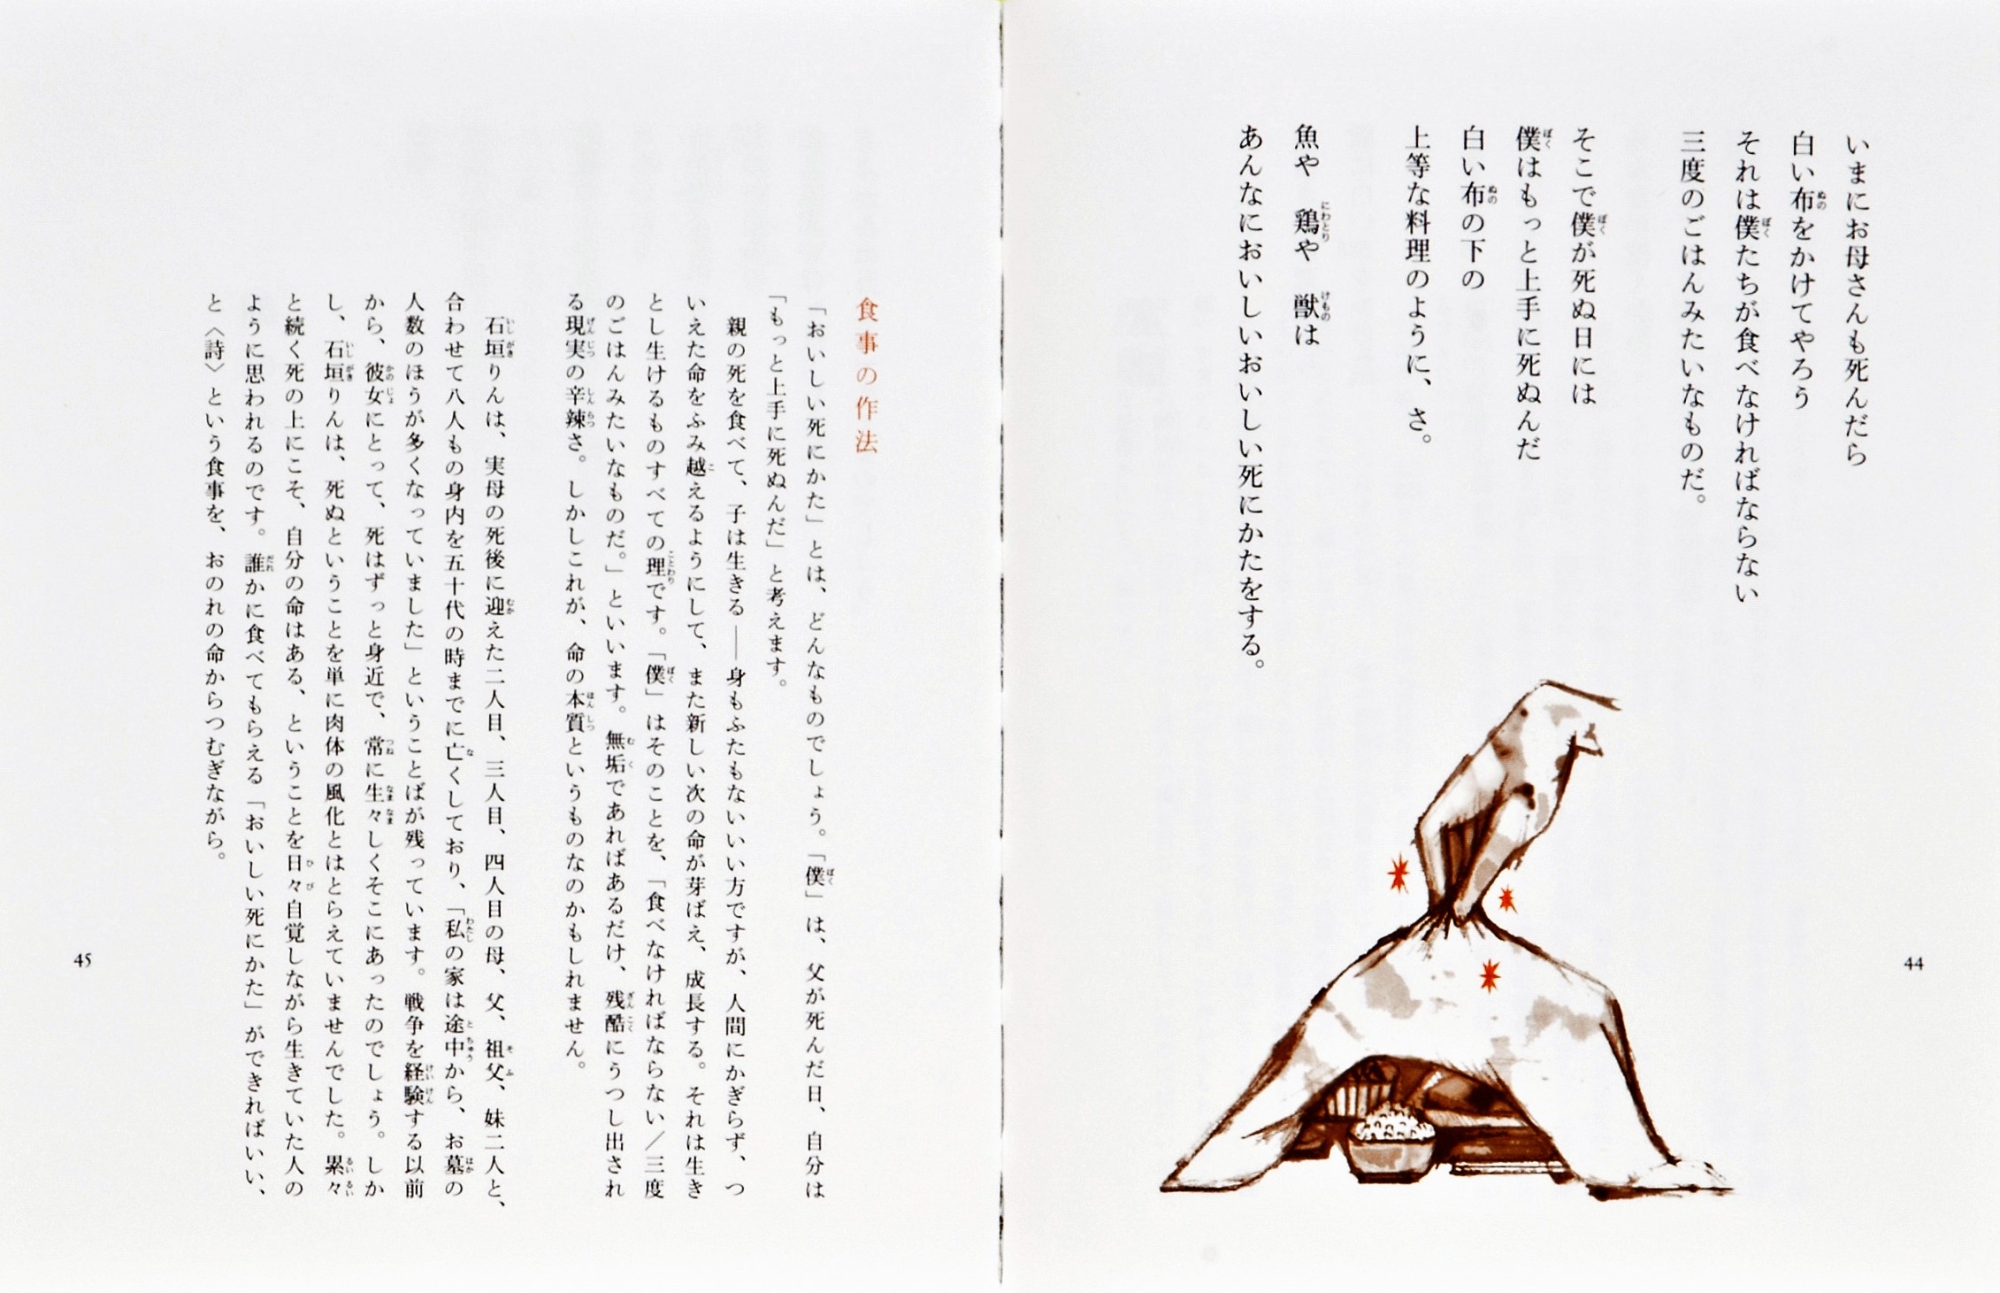 いまにお母さんも死んだら
白い布をかけてやろう
それは僕たちが食べなければならない
三度のごはんみたいなものだ。
そこで僕が死ぬ日には
僕はもっと上手に死ぬんだ
白い布の下の
上等な料理のように、さ。
魚や　鶏や　獣は
あんなにおいしいおいしい死にかたをする。
44
食事の作法
「おいしい死にかた」とは、どんなものでしょう。「僕」は、父が死んだ日、自分は
「もっと上手に死ぬんだ」と考えます。
親の死を食べて、子は生きる――身もふたもないいい方ですが、人間にかぎらず、つ
いえた命をふみ越えるようにして、また新しい次の命が芽ばえ、成長する。それは生き
とし生けるものすべての理です。「僕」はそのことを、「食べなければならない／三度
のごはんみたいなものだ。」といいます。無垢であればあるだけ、残酷にうつし出され
る現実の辛辣さ。しかしこれが、命の本質というものなのかもしれません。
石垣りんは、実母の死後に迎えた二人目、三人目、四人目の母、父、祖父、妹二人と、
合わせて八人もの身内を五十代の時までに亡くしており、「私の家は途中から、お墓の
人数のほうが多くなっていました」ということばが残っています。戦争を経験する以前
から、彼女にとって、死はずっと身近で、常に生々しくそこにあったのでしょう。しか
し、石垣りんは、死ぬということを単に肉体の風化とはとらえていませんでした。累々
と続く死の上にこそ、自分の命はある、ということを日々自覚しながら生きていた人の
ように思われるのです。誰かに食べてもらえる「おいしい死にかた」ができればいい、
と〈詩〉という食事を、おのれの命からつむぎながら。
45